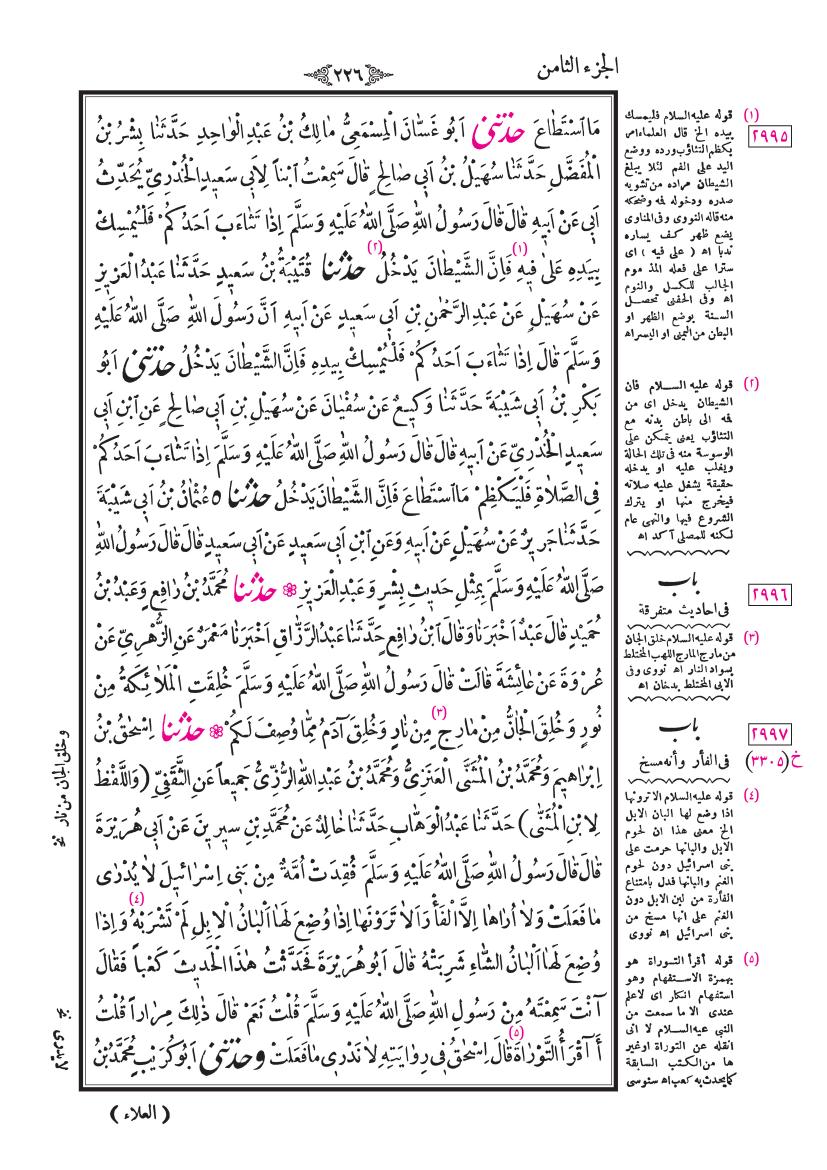 الجزء الثامن
٢٢٦
مَا اسْتَطَاعَ حَدَّثَنِي اَبُو غَسَّانَ الْمِسْمَعِيُّ مَالِكُ بْنُ عَبْدِ الْوَاحِدِ حَدَّثَنَا بِشْرُ بْنُ
الْمُفَضَّلِ حَدَّثَنَا سُهَيْلُ بْنُ اَبِي صَالِحٍ قَالَ سَمِعْتُ ابْناً لِاَبِي سَعِيدٍ الْخُدْرِيِّ يُحَدِّثُ
اَبِي عَنْ اَبِيهِ قَالَ قَالَ رَسُولُ اللهِ صَلَّى اللهُ عَلَيْهِ وَسَلَّمَ اِذَا تَثَاءَبَ اَحَدُكُمْ فَلْيُمْسِكْ
بِيَدِهِ عَلٰى فِيهِ (١) فَاِنَّ الشَّيْطَانَ يَدْخُلُ (٢) حَدَّثَنَا قُتَيْبَةُ بْنُ سَعِيدٍ حَدَّثَنَا عَبْدُ الْعَزِيزِ
عَنْ سُهَيْلٍ عَنْ عَبْدِ الرَّحْمٰنِ بْنِ اَبِي سَعِيدٍ عَنْ اَبِيهِ اَنَّ رَسُولَ اللهِ صَلَّى اللهُ عَلَيْهِ
وَسَلَّمَ قَالَ اِذَا تَثَاءَبَ اَحَدُكُمْ فَلْيُمْسِكْ بِيَدِهِ فَاِنَّ الشَّيْطَانَ يَدْخُلُ حَدَّثَنِي اَبُو
بَكْرِ بْنُ اَبِي شَيْبَةَ حَدَّثَنَا وَكِيعٌ عَنْ سُفْيَانَ عَنْ سُهَيْلِ بْنِ اَبِي صَالِحٍ عَنِ ابْنِ اَبِي
سَعِيدٍ الْخُدْرِيِّ عَنْ اَبِيهِ قَالَ قَالَ رَسُولُ اللهِ صَلَّى اللهُ عَلَيْهِ وَسَلَّمَ اِذَا تَثَاءَبَ اَحَدُكُمْ
فِي الصَّلَاةِ فَلْيَكْظِمْ مَا اسْتَطَاعَ فَاِنَّ الشَّيْطَانَ يَدْخُلُ حَدَّثَنَاه عُثْمَانُ بْنُ اَبِي شَيْبَةَ
حَدَّثَنَا جَرِيرٌ عَنْ سُهَيْلٍ عَنْ اَبِيهِ وَعَنِ ابْنِ اَبِي سَعِيدٍ عَنْ اَبِي سَعِيدٍ قَالَ قَالَ رَسُولُ اللهِ
صَلَّى اللهُ عَلَيْهِ وَسَلَّمَ بِمِثْلِ حَدِيثِ بِشْرٍ وَعَبْدِ الْعَزِيزِ ۞ حَدَّثَنَا مُحَمَّدُ بْنُ رَافِعٍ وَعَبْدُ بْنُ
حُمَيْدٍ قَالَ عَبْدٌ اَخْبَرَنَا وَقَالَ ابْنُ رَافِعٍ حَدَّثَنَا عَبْدُ الرَّزَّاقِ اَخْبَرَنَا مَعْمَرٌ عَنِ الزُّهْرِيِّ عَنْ
عُرْوَةَ عَنْ عَائِشَةَ قَالَتْ قَالَ رَسُولُ اللهِ صَلَّى اللهُ عَلَيْهِ وَسَلَّمَ خُلِقَتِ الْمَلَائِكَةُ مِنْ
نُورٍ وَخُلِقَ الْجَانُّ مِنْ مَارِجٍ (٣) مِنْ نَارٍ وَخُلِقَ آدَمُ مِمَّا وُصِفَ لَكُمْ ۞ حَدَّثَنَا اِسْحٰقُ بْنُ
اِبْرَاهِيمَ وَمُحَمَّدُ بْنُ الْمُثَنَّى الْعَنَزِيُّ وَمُحَمَّدُ بْنُ عَبْدِ اللهِ الرُّزِّيُّ جَمِيعاً عَنِ الثَّقَفِيِّ (وَاللَّفْظُ
لِابْنِ الْمُثَنَّى) حَدَّثَنَا عَبْدُ الْوَهَّابِ حَدَّثَنَا خَالِدٌ عَنْ مُحَمَّدِ بْنِ سِيرِينَ عَنْ اَبِي هُرَيْرَةَ
قَالَ قَالَ رَسُولُ اللهِ صَلَّى اللهُ عَلَيْهِ وَسَلَّمَ فُقِدَتْ اُمَّةٌ مِنْ بَنِي اِسْرَائِيلَ لَا يُدْرٰى
مَا فَعَلَتْ وَلَا اُرَاهَا اِلَّا الْفَأْرَ اَلَا تَرَوْنَهَا اِذَا وُضِعَ لَهَا اَلْبَانُ الْاِبِلِ لَمْ تَشْرَبْهُ (٤) وَاِذَا
وُضِعَ لَهَا اَلْبَانُ الشَّاءِ شَرِبَتْهُ قَالَ اَبُو هُرَيْرَةَ فَحَدَّثْتُ هٰذَا الْحَدِيثَ كَعْباً فَقَالَ
آنْتَ سَمِعْتَهُ مِنْ رَسُولِ اللهِ صَلَّى اللهُ عَلَيْهِ وَسَلَّمَ قُلْتُ نَعَمْ قَالَ ذٰلِكَ مِرَاراً قُلْتُ
أَأَقْرَأُ التَّوْرَاةَ (٥) قَالَ اِسْحٰقُ فِي رِوَايَتِهِ لَا نَدْرِي مَا فَعَلَتْ وحَدَّثَنِي اَبُو كُرَيْبٍ مُحَمَّدُ بْنُ
(١) قوله عليه السلام فليمسك
٢٩٩٥
بيده الخ قال العلماء امر
بكظم التثاؤب ورده ووضع
اليد على الفم لئلا يبلغ
الشيطان مراده من تشويه
صدره ودخوله فمه وضحكه
منه قاله النووى وفى المناوى
يضع ظهر كف يساره
ندبا اه ( على فيه ) اى
سترا على فعله المذموم
الجالب للكسل والنوم
اه وفى الحفنى تحصل
السنة بوضع الظهر او
البطن من اليمنى او اليسرى اه
(٢) قوله عليه السلام فان
الشيطان يدخل اى من
فمه الى باطن بدنه مع
التثاؤب يعنى يتمكن على
الوسوسة منه فى تلك الحالة
ويغلب عليه او يدخله
حقيقة يشغل عليه صلاته
فيخرج منها او يترك
الشروع فيها والنهى عام
لكنه للمصلى آكد اه
باب
٢٩٩٦
فى احاديث متفرقة
(٣) قوله عليه السلام خلق الجان
من مارج المارج اللهب المختلط
بسواد النار اه نووى وفى
الابى المختلط بدخان اه
باب
٢٩٩٧
فى الفأر وأنه مسخ
خ (٣٣٠٥)
(٤) قوله عليه السلام الا ترونها
اذا وضع لها البان الابل
الخ معنى هذا ان لحوم
الابل والبانها حرمت على
بنى اسرائيل دون لحوم
الغنم والبانها فدل بامتناع
الفأرة من لبن الابل دون
الغنم على انها مسخ من
بنى اسرائيل اه نووى
(٥) قوله أقرأ التوراة هو
بهمزة الاستفهام وهو
استفهام انكار اى لا علم
عندى الا ما سمعت من
النبى عيه السلام لا انى
انقله عن التوراة او غير
ها من الكتب السابقة
كما يحدث به كعب اه سنوسى
وخلق الجان من نار نخ
لا يدرى نخ
( العلاء )